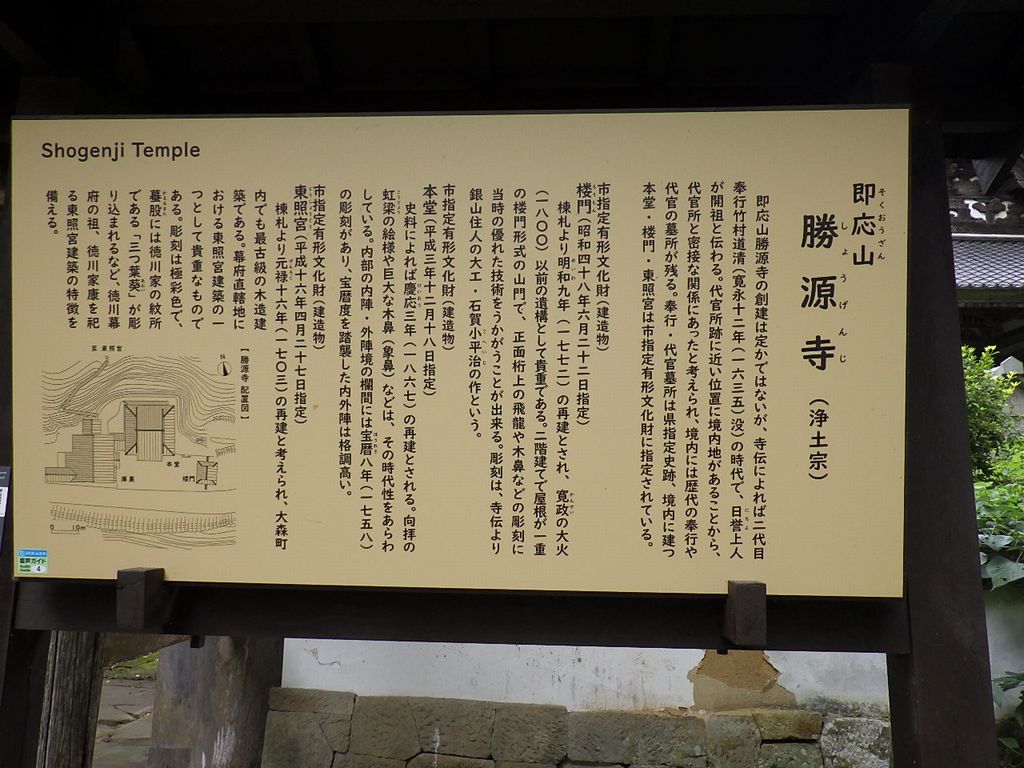 Shogenji Temple
即応山
そくおうざん
勝源寺（浄土宗）
しょうげんじ
即応山勝源寺の創建は定かではないが、寺伝によれば二代目
奉行竹村道清（寛永十二年（一六三五）没）の時代で、日誉上人
にちよ
が開祖と伝わる。代官所跡に近い位置に境内地があることから、
代官所と密接な関係にあったと考えられ、境内には歴代の奉行や
代官の墓所が残る。奉行・代官墓所は県指定史跡、境内に建つ
本堂・楼門・東照宮は市指定有形文化財に指定されている。
市指定有形文化財（建造物）
楼門（昭和四十八年六月二十二日指定）
棟札より明和九年（一七七二）の再建とされ、寛政の大火
めいわ
かんせい
（一八〇〇）以前の遺構として貴重である。二階建てで屋根が一重
の楼門形式の山門で、正面桁上の飛龍や木鼻などの彫刻に
当時の優れた技術をうかがうことが出来る。彫刻は、寺伝より
銀山住人の大工・石賀小平治の作という。
市指定有形文化財（建造物）
本堂（平成三年十二月十八日指定）
史料によれば慶応三年（一八六七）の再建とされる。向拝の
虹梁の絵様や巨大な木鼻（象鼻）などは、その時代性をあらわ
こうりょう
している。内部の内陣・外陣境の欄間には宝暦八年（一七五八）
ほうれき
の彫刻があり、宝暦度を踏襲した内外陣は格調高い。
市指定有形文化財（建造物）
東照宮（平成十六年四月二十七日指定）
棟札より元禄十六年（一七〇三）の再建と考えられ、大森町
げんろく
内でも最古級の木造建
築である。幕府直轄地に
おける東照宮建築の一
つとして貴重なもので
ある。彫刻は極彩色で、
蟇股には徳川家の紋所
かえるまた
である「三つ葉葵」が彫
あおい
り込まれるなど、徳川幕
府の祖、徳川家康を祀
る東照宮建築の特徴を
備える。
［勝源寺 配置図］
至 東照宮
N
本堂
庫裏
楼門
0 10m
音声ガイド
Audio Guide
4